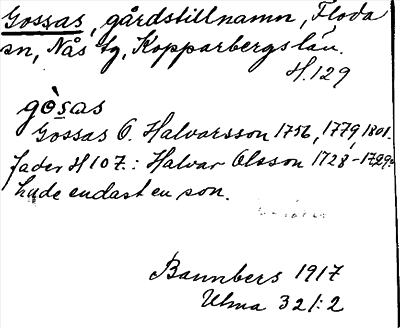 Gossas, gårdstillnamn, Floda
sn, Nås tg, Kopparbergs län.
H. 129
gòsas
Gossas O. Halvarsson 1756, 1779, 1801.
fader H 107.: Halvar Olsson 1728-
hade endast en son.
Bannbers 1917
Ulma 321:2